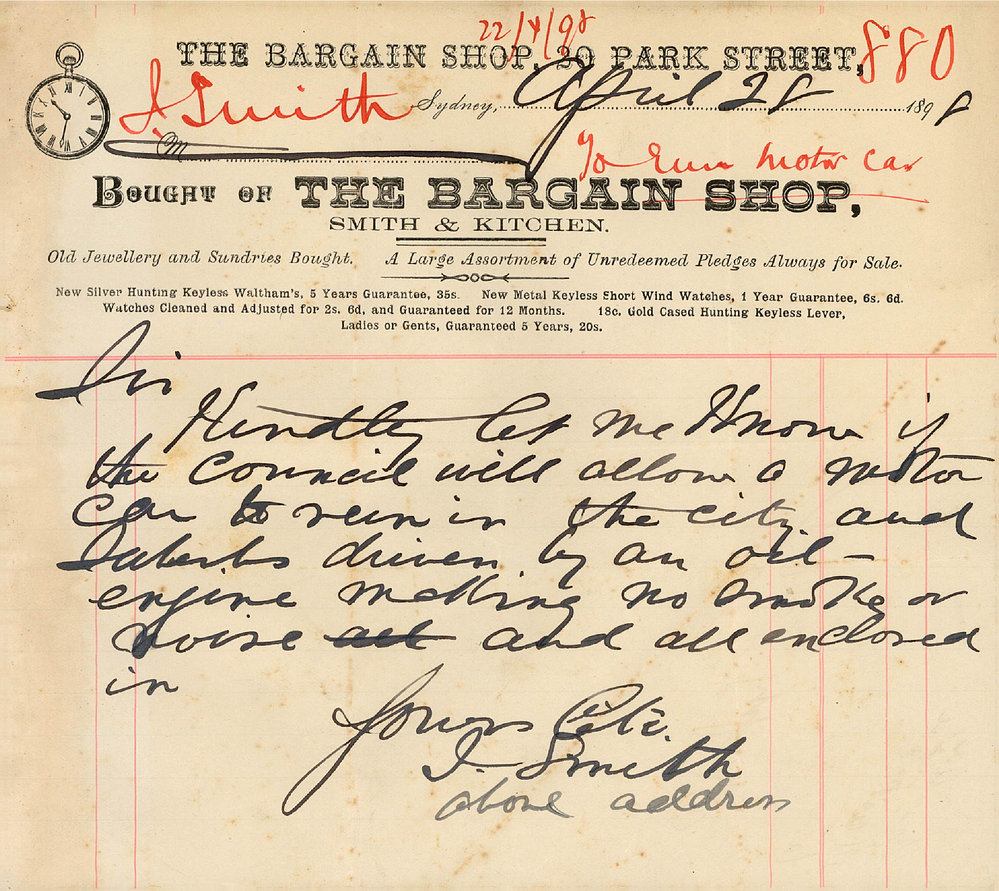 22/4/98
THE BARGAIN SHOP, 20 PARK STREET,
880
J. Smith
Sydney, April 28 1898
M
To run motor car
BOUGHT OF THE BARGAIN SHOP,
SMITH & KITCHEN.
Old Jewellery and Sundries Bought. A Large Assortment of Unredeemed Pledges Always for Sale.
New Silver Hunting Keyless Waltham's, 5 Years Guarantee, 35s. New Metal Keyless Short Wind Watches, 1 Year Guarantee, 6s. 6d.
Watches Cleaned and Adjusted for 2s. 6d, and Guaranteed for 12 Months. 18c. Gold Cased Hunting Keyless Lever,
Ladies or Gents, Guaranteed 5 Years, 20s.
Sir
Kindly let me know if
the Council will allow a motor
car to run in the city and
Suburbs driven by an oil-
engine making no smoke or
noise all and all enclosed
in
Yours Etc.
J. Smith
above address